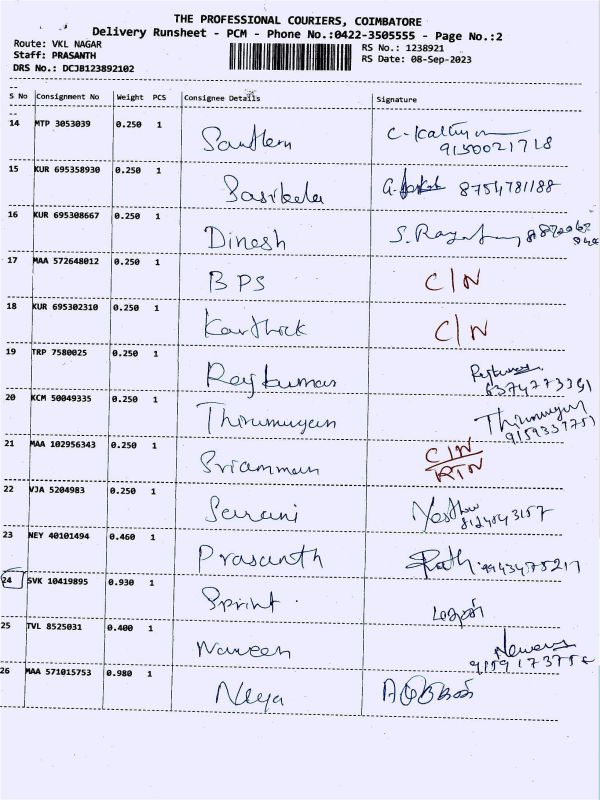 THE PROFESSIONAL COURIERS, COIMBATORE
Delivery Runsheet - PCM - Phone No.:0422-3505555 - Page No.:2
Route: VKL NAGAR RS No.: 1238921
Staff: PRASANTH RS Date: 08-Sep-2023
DRS No.: DCJB123892102
S No Consignment No Weight PCS Consignee Details Signature
14 MTP 3053039 0.250 1
9150021718
15 KUR 695358930 0.250 1 Sasikala 8754781188
16 KUR 695308667 0.250 1 Dinesh
17 MAA 572648012 0.250 1 BPS C/N
18 KUR 695302310 0.250 1 Karthick C/N
19 TRP 7580025 0.250 1 Rajkumar
20 KCM 50049335 0.250 1 Thirumugam
21 MAA 102956343 0.250 1 Sriamman C/N
RTN
22 VJA 5204983 0.250 1
23 NEY 40101494 0.460 1 Prasanth
24 SVK 10419895 0.930 1 Sprint
25 TVL 8525031 0.400 1 Naveen
26 MAA 571015753 0.980 1